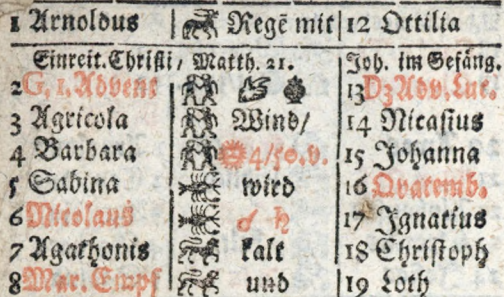 1 Arnoldus Regē mit 12 Ottilia
Einreit. Christi / Matth. 21. Joh. im Gefäng.
2 G. 1. Advent 13 D3 Adv. Luc.
3 Agricola Wind / 14 Nicasius
4 Barbara 4/50.v. 15 Johanna
5 Sabina wird 16 Quatemb.
6 Nicolaus ☌ ♄ 17 Ignatius
7 Agathonis kalt 18 Christoph
8 Mar. Empf und 19 Loth